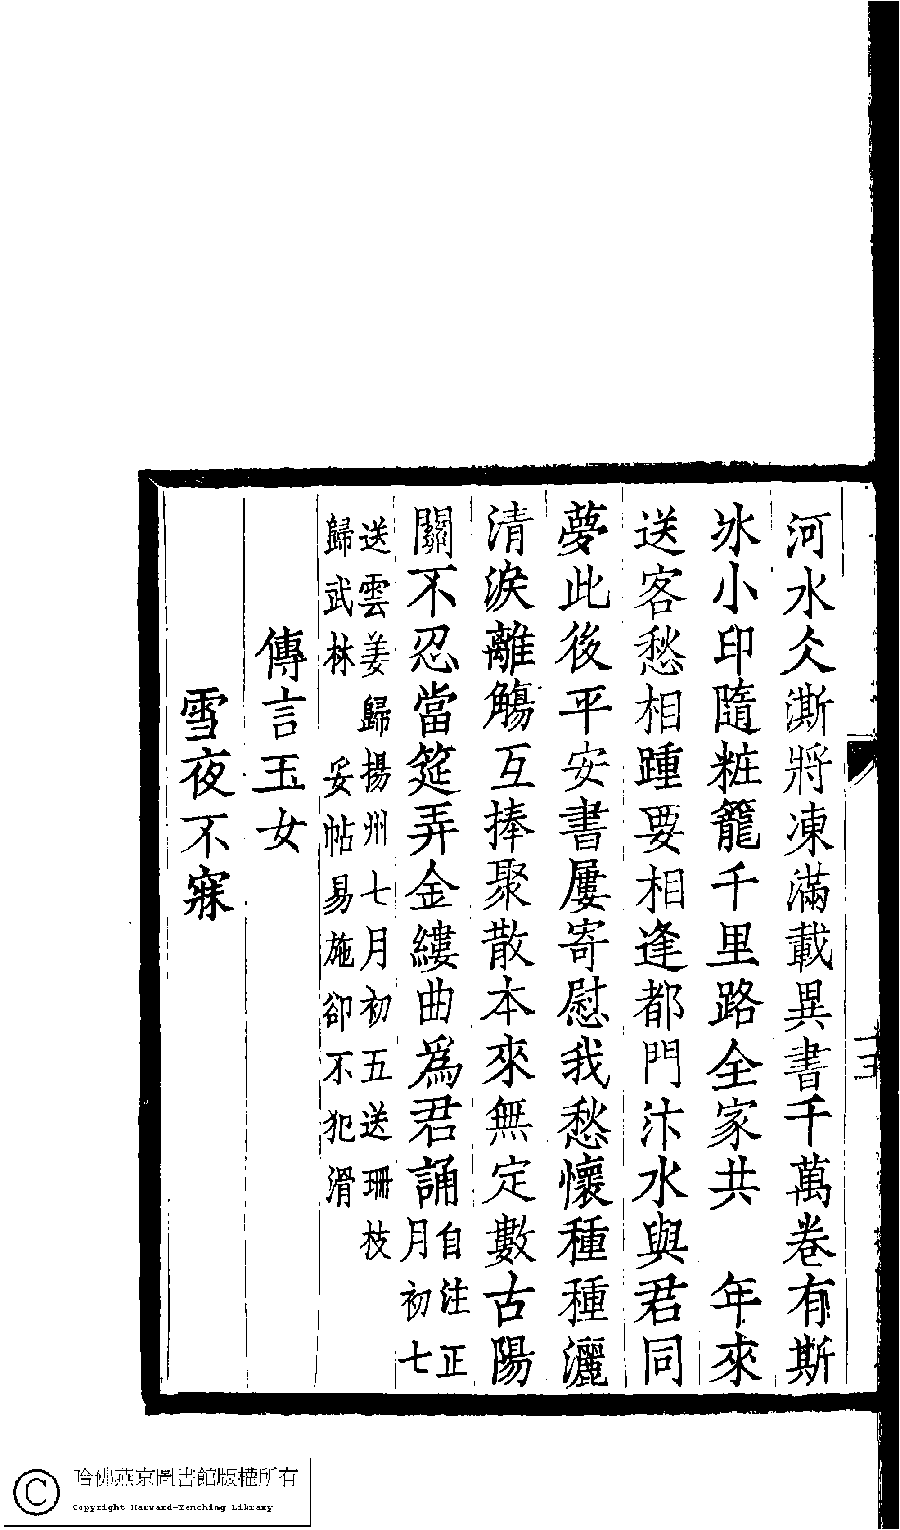 河水仌澌將凍滿載異書千萬卷有斯
冰小印隨粧籠千里路全家共　年來
送客愁相踵要相逢都門汴水與君同
夢此後平安書屢寄慰我愁懷種種灑
清淚離觴互捧聚散本來無定數古陽
關不忍當筵弄金縷曲為君誦自注正
月初七
送雲姜歸揚州七月初五送珊枝
歸武林　妥帖易施卻不犯滑
傳言玉女
雪夜不寐
哈佛燕京圖書館版權所有
Copyright Harvard-Yenching Library